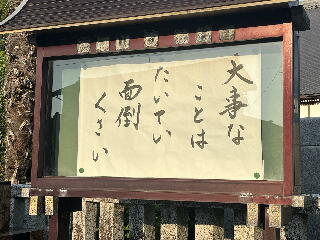 大事な
ことは
たいてい
面倒
くさい